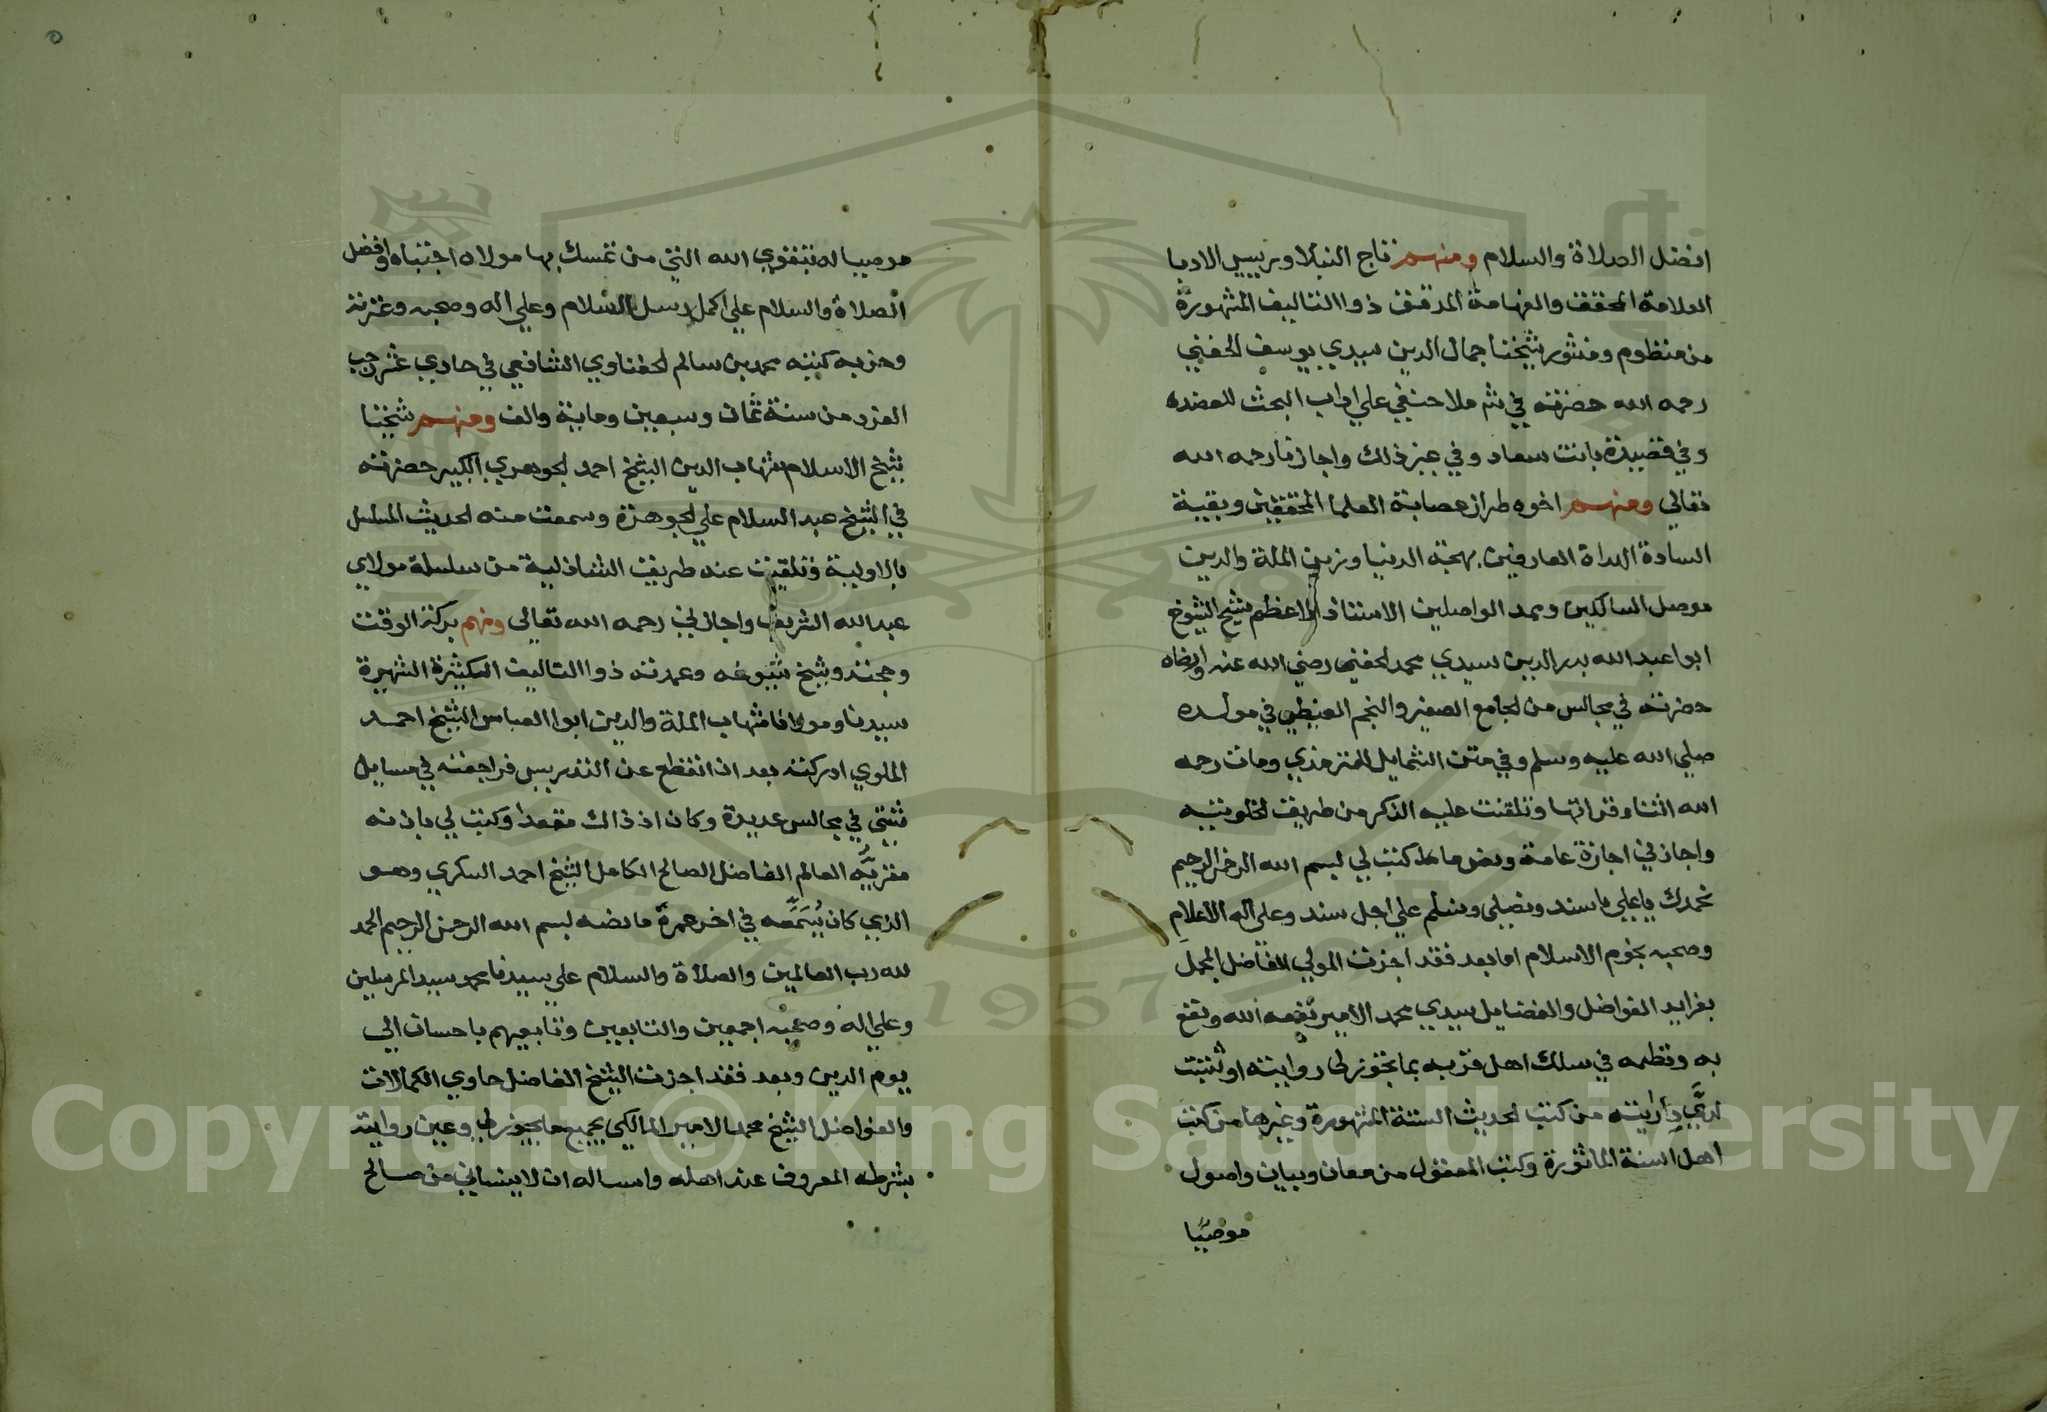 افضل الصلاة والسلام ومنهم تاج النبلا ورييس الادبا
العلامة المحقق والفهامة المدقق ذوا التاليف المشهورة
من منظوم ومنثور شيخنا جمال الدين سيدي يوسف الحفني
رحمه الله حضرته في شرح ملا حنفي علي اداب البحث للعضده
وفي قصيدة بانت سعاد وفي غير ذلك واجازنا رحمه الله
تعالي ومنهم اخوه طراز عصابة العلما المحققين وبقية
السادة الهداة العارفين بهجة الدنيا وزين الملة والدين
موصل السالكين وممد الواصلين الاستاذ الاعظم شيخ الشيوخ
ابوا عبد الله بدر الدين سيدي محمد الحفني رضي الله عنه وارضاه
حضرته في مجالس من الجامع الصغير والنجم الغيطي في مولده
صلي الله عليه وسلم وفي متن الشمايل للترمذي ومات رحمه
الله اثناء قراتها وتلقنت عليه الذكر من طريق الخلوتيه
واجازني اجازة عامة ونص ما كتب لي بسم الله الرحمن الرحيم
نحمدك يا علي يا سند ونصلي ونسلم علي اجل سند وعلي اله الاعلام
وصحبه نجوم الاسلام اما بعد فقد اجزت المولي الفاضل المجمل
بفرايد الفواضل والفضايل سيدي محمد الامير نفعه الله ونفع
به ونظمه في سلك اهل قربه بما تجوز لي روايته او تثبت
لدي درايته من كتب الحديث الستة المشهورة وغيرها من كتب
اهل السنة الماثورة وكتب المعقول من معان وبيان واصول
موصيا
موصيا له بتقوي الله التي من تمسك بها مولاه اجتباه وافضل
الصلاة والسلام علي اكمل رسل السلام وعلي اله وصحبه وعترته
وحزبه كتبه محمد بن سالم الحفناوي الشافعي في حادي عشر رجب
الفرد من سنة ثمان وسبعين وماية والف ومنهم شيخنا
شيخ الاسلام شهاب الدين الشيخ احمد الجوهري الكبير حضرته
في الشيخ عبد السلام علي الجوهرة وسمعت منه الحديث المسلسل
بالاولية وتلقيت عنه طريق الشاذلية من سلسلة مولاي
عبد الله الشريف واجازني رحمه الله تعالي ومنهم بركة الوقت
ومجته وشيخ شيوخه وعمدته ذوا التاليف الكثيرة الشهيرة
سيدنا ومولانا شهاب الملة والدين ابوا العباس الشيخ احمد
الملوي ادركته بعد ان انقطع عن التدريس فراجعته في مسايل
شتي في مجالس عديدة وكان اذ ذاك مقعدا وكتب لي باذنه
مقريه العالم الفاضل الصالح الكامل الشيخ احمد السكري وهو
الذي كان يسمعه في اخر عمره ما نصه بسم الله الرحمن الرحيم الحمد
لله رب العالمين والصلاة والسلام علي سيدنا محمد سيد المرسلين
وعلي اله وصحبه اجمعين والتابعين وتابعيهم باحسان الي
يوم الدين وبعد فقد اجزت الشيخ الفاضل حاوي الكمالات
والفواضل الشيخ محمد الامير المالكي بجميع ما يجوز لي وعين روايته
بشرطه المعروف عند اهله واساله ان لا ينساني من صالح
1957
Copyright © King Saud University